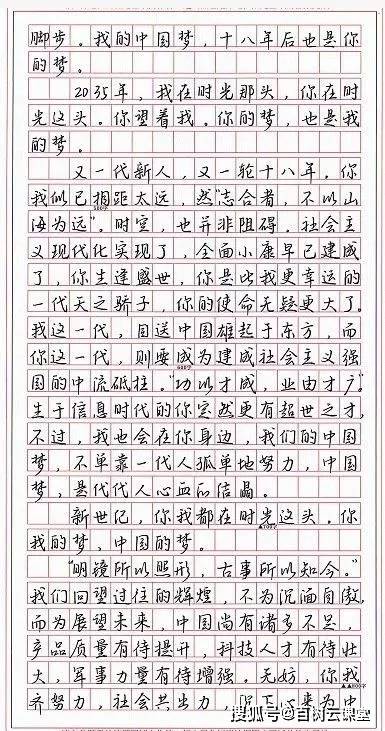 脚步。我的中国梦，十八年后也是你
的梦。
2035年，我在时光那头，你在时
光这头。你望着我。你的梦，也是我
的梦。
又一代新人，又一轮十八年。你
我似已相距太远，然“志合者，不以山
海为远”。时空，也并非阻碍。社会主
义现代化实现了，全面小康早已建成
了，你生逢盛世，你是比我更幸运的
一代天之骄子，你的使命无疑更大了。
我这一代，目送中国雄起于东方，而
你这一代，则要成为建成社会主义强
国的中流砥柱。“功以才成，业由才广。”
生于信息时代的你定然更有超世之才，
不过，我也会在你身边，我们的中国
梦，不单靠一代人孤单地努力，中国
梦，是代代人心血的结晶。
新世纪，你我都在时光这头。你
我的梦，中国的梦。
“明镜所以照形，古事所以知今。”
我们回望过往的辉煌，不为沉湎自傲，
而为展望未来，中国尚有诸多不足，
产品质量有待提升，科技人才有待壮
大，军事力量有待增强。无妨，你我
齐努力，社会共出力，
为中
600字
▲700字
▲800字
搜狐号@百树云课堂